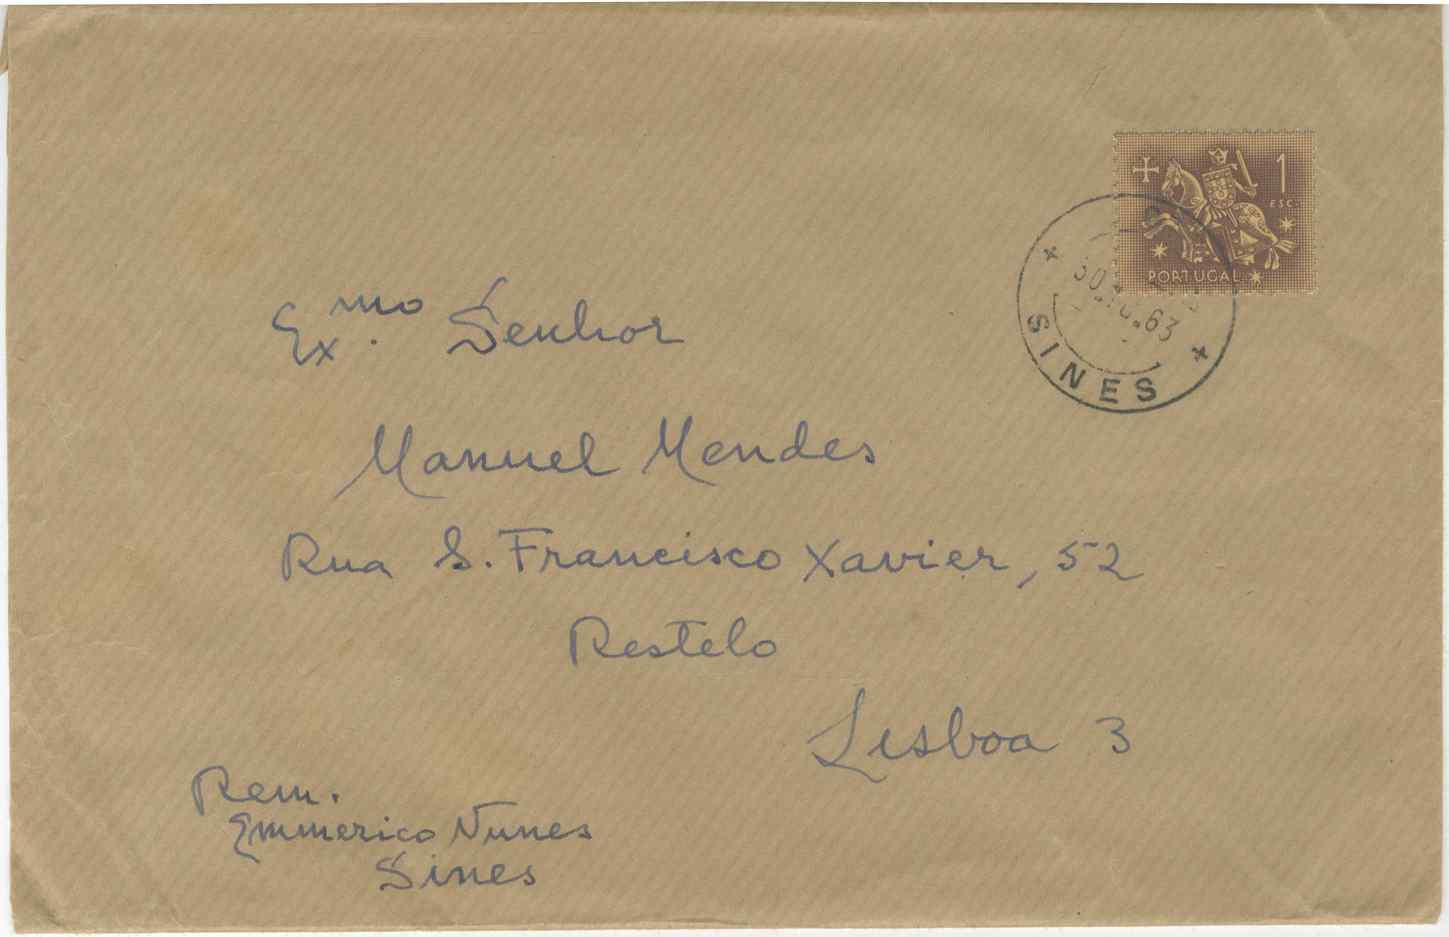 1
ESC.
PORTUGAL
63
SINES
Exmo. Senhor
Manuel Mendes
Rua S. Francisco Xavier, 52
Restelo
Lisboa 3
Rem.
Emmerico Nunes
Sines